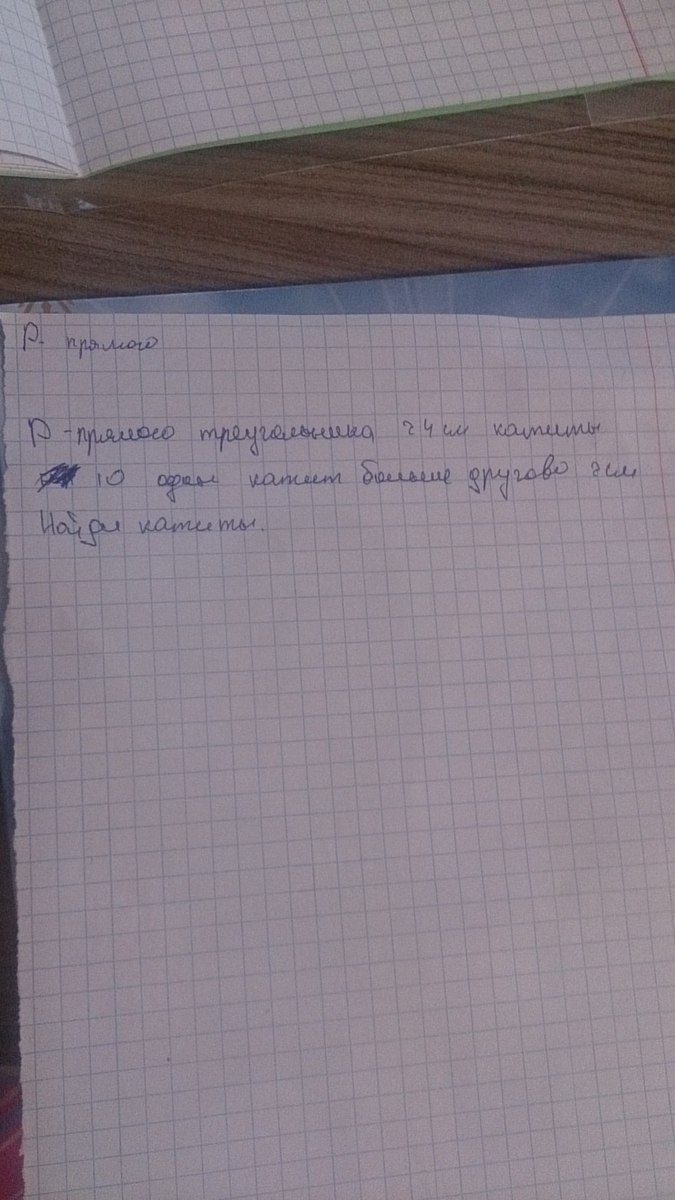 P- прямого
P-прямого треугольника 24 см катиты
10 один катит больше другово 2 см
Найди катиты.